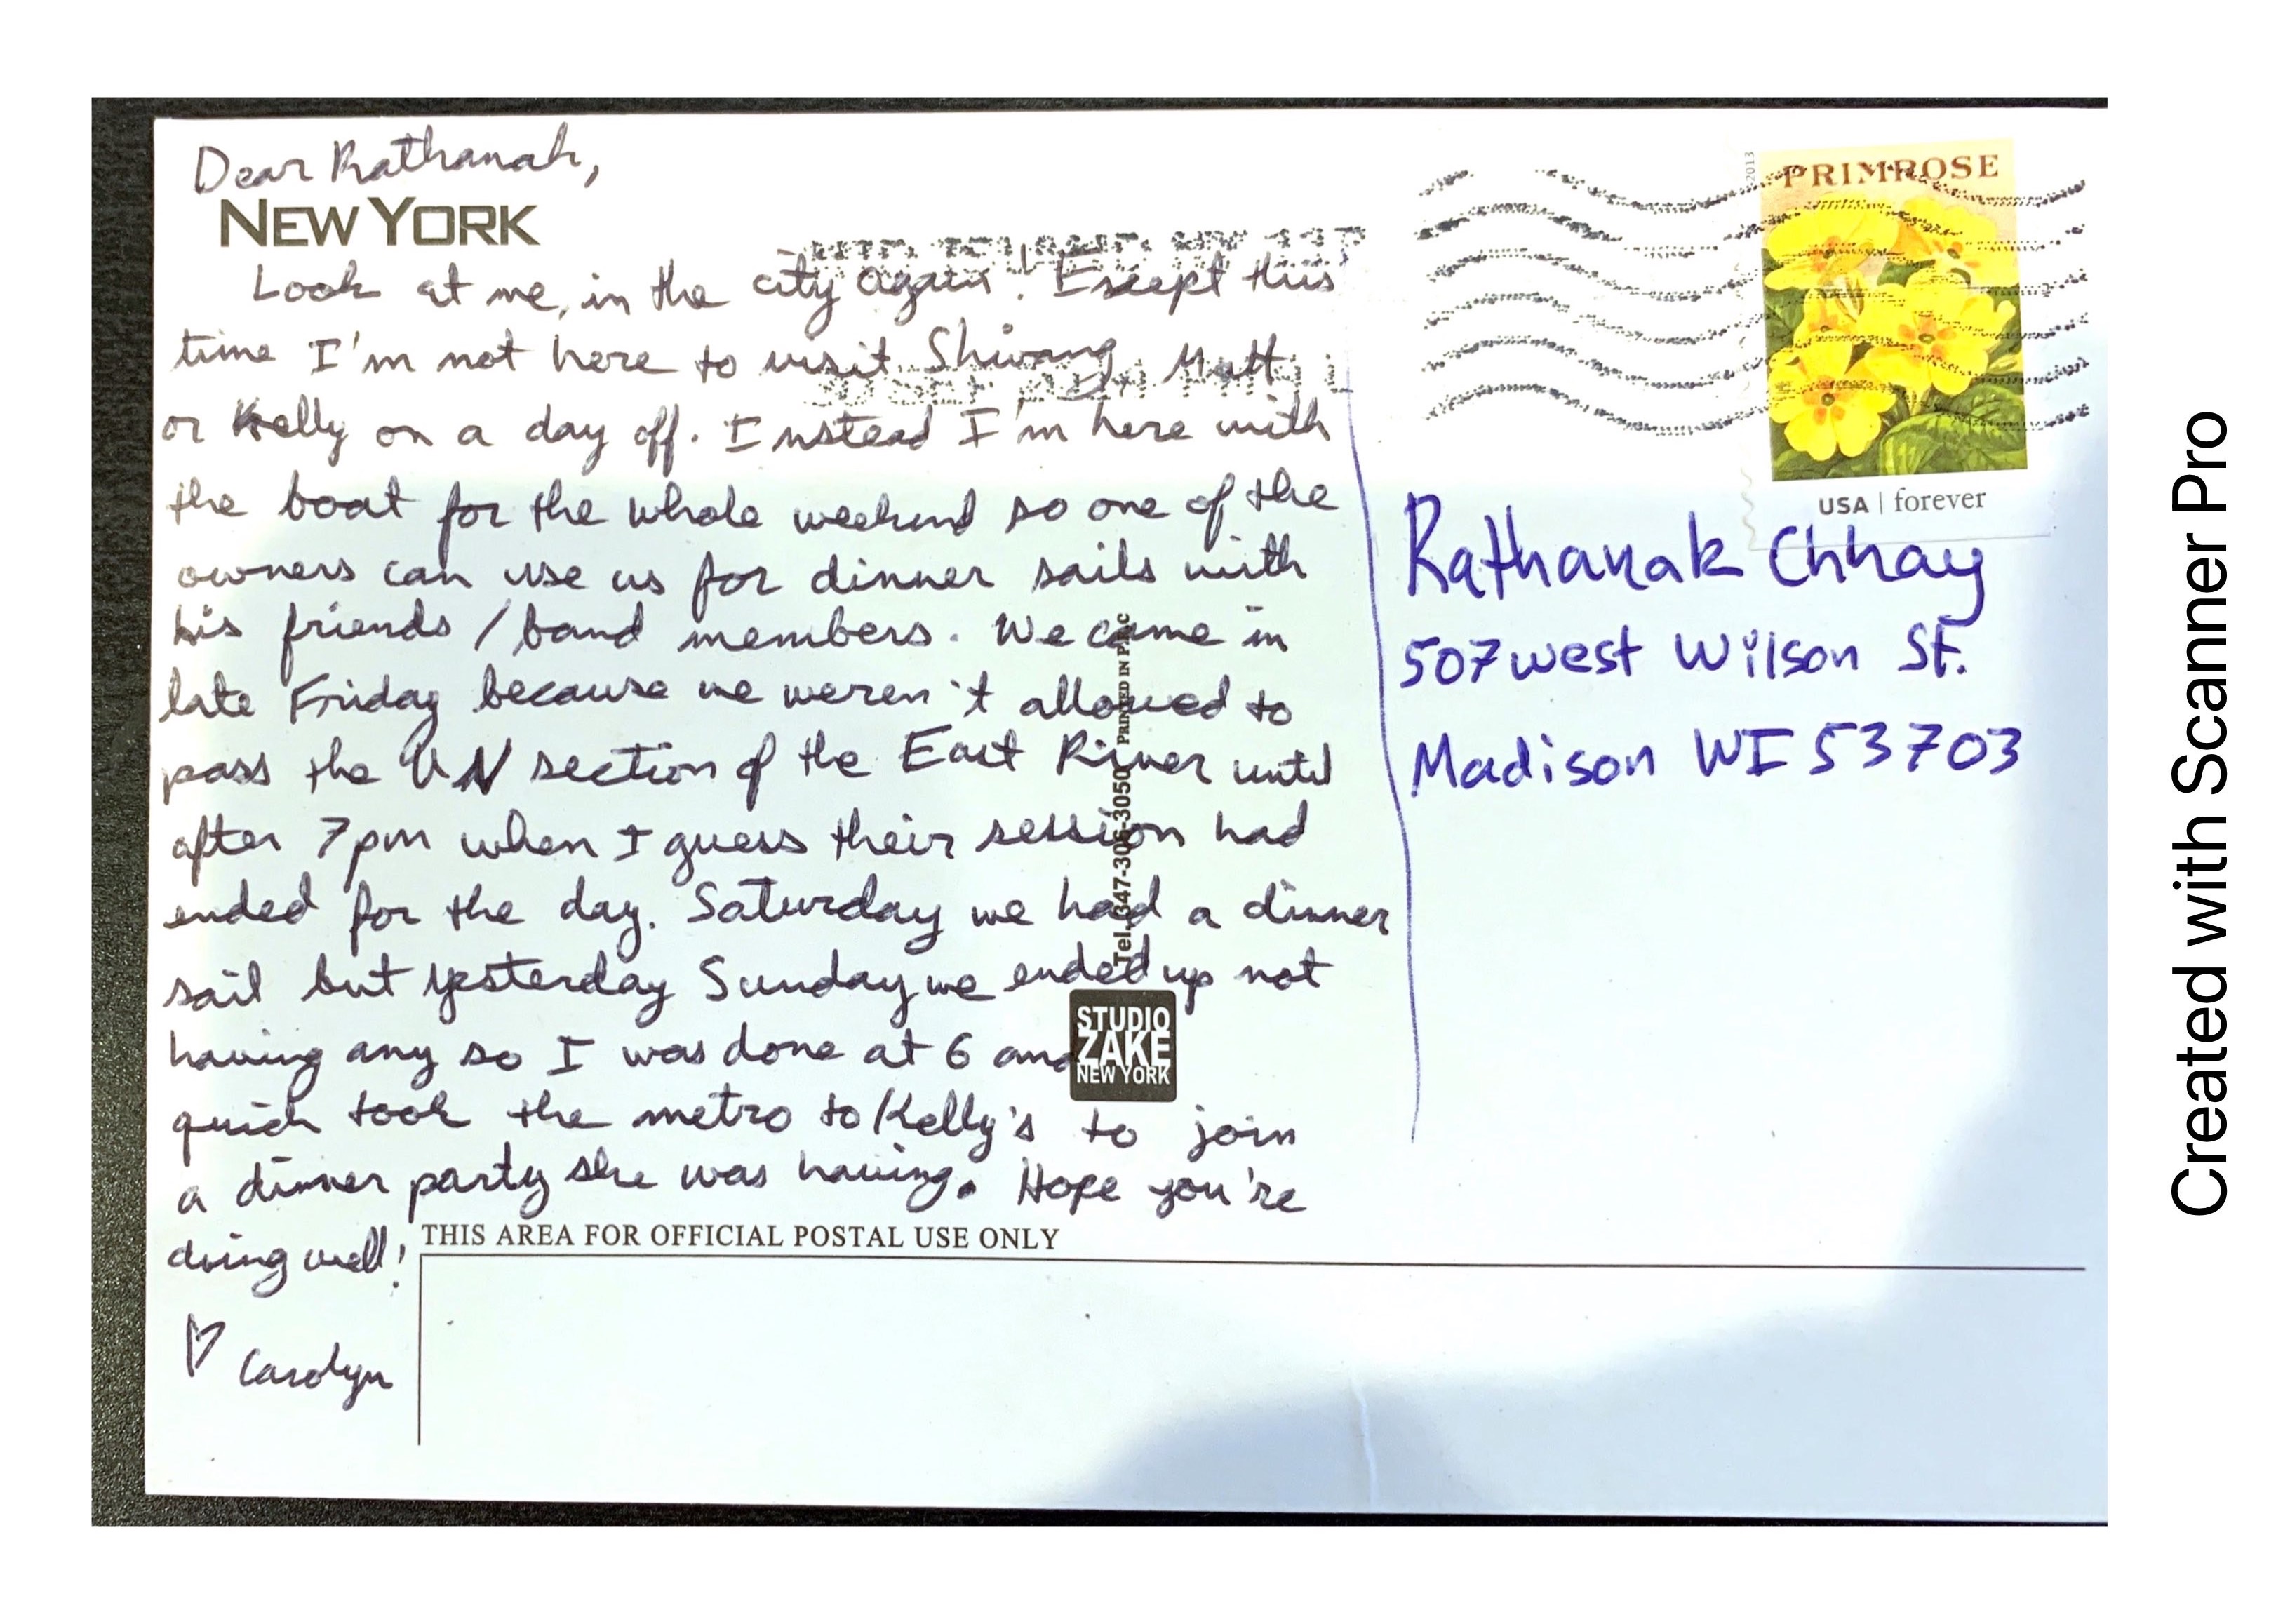 Dear Rathanak,
NEW YORK
Look at me, in the city again! Except this
time I'm not here to visit Shivang, Matt
or Kelly on a day off. Instead I'm here with
the boat for the whole weekend so one of the
owners can use us for dinner sails with
his friends / band members. We came in
late Friday because we weren't allowed to
pass the UN section of the East River until
after 7pm when I guess their session had
ended for the day. Saturday we had a dinner
sail but yesterday Sunday we ended up not
having any so I was done at 6 and
quick took the metro to Kelly's to join
a dinner party she was having. Hope you're
doing well!
♡ Carolyn
Tel. 347-306-3050 PRINTED IN P.R.C
STUDIO
ZAKE
NEW YORK
THIS AREA FOR OFFICIAL POSTAL USE ONLY
2013
PRIMROSE
USA | forever
Rathanak Chhay
507 west Wilson St.
Madison WI 53703
Created with Scanner Pro